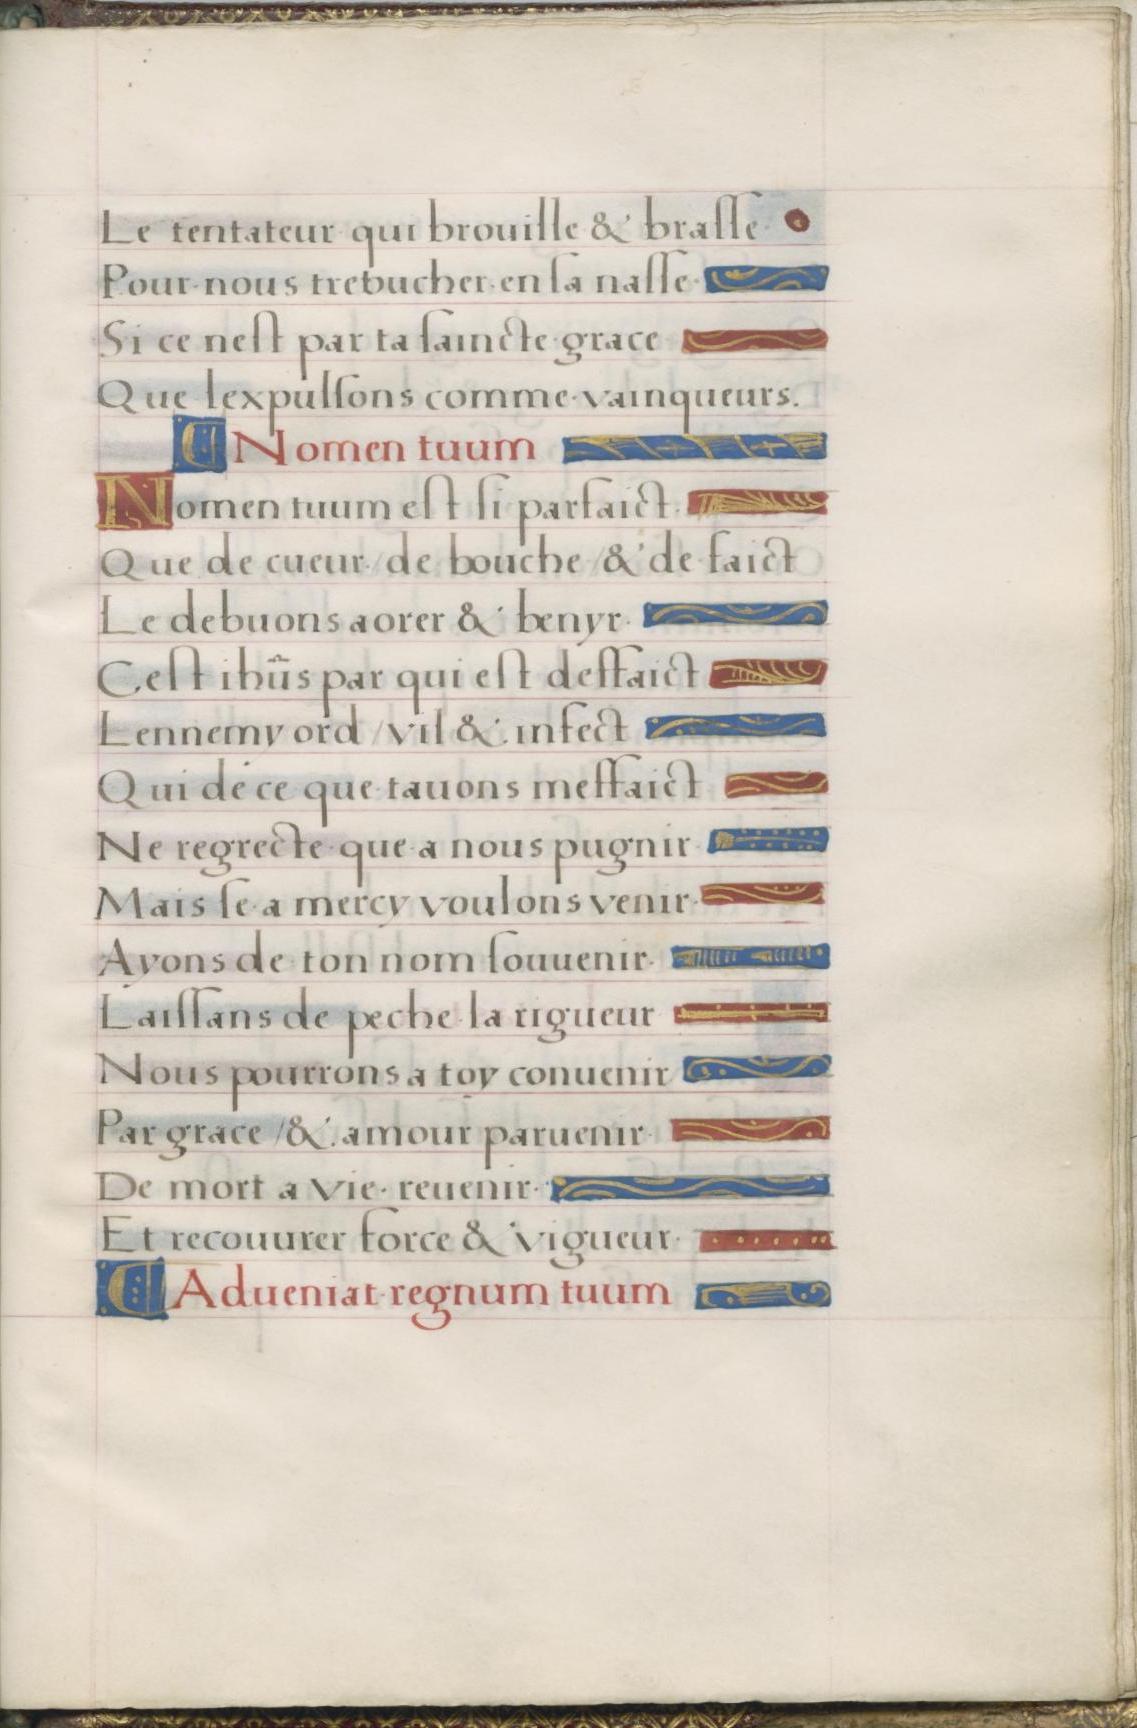 Le tentateur qui brouille & brasse
Pour nous trebucher en sa nasse
Si ce nest par ta saincte grace
Que lexpulsons comme vainqueurs.
Nomen tuum
Nomen tuum est si parfaict
Que de cueur / de bouche / & de faict
Le debuons aorer & benyr
Cest ihũs par qui est deffaict
Lennemy ord / vil & infect
Qui de ce que tauons meffaict
Ne regrecte que a nous pugnir
Mais se a mercy voulons venir
Ayons de ton nom souuenir
Laissans de peche la rigueur
Nous pourrons a toy conuenir
Par grace / & amour paruenir
De mort a vie reuenir
Et recouurer force & vigueur
Adueniat regnum tuum